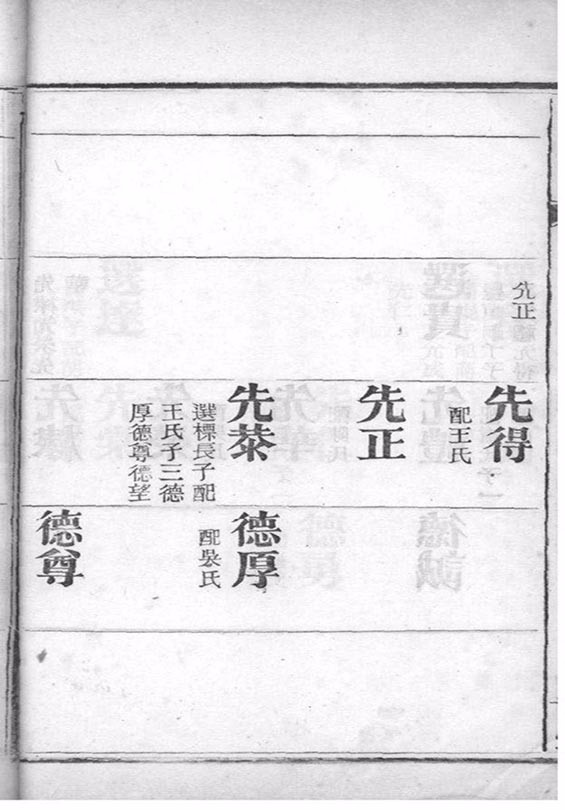 先正
先得
配王氏
先正
先棻
選標長子配
王氏子三德
厚德尊德望
德厚
配吳氏
德尊